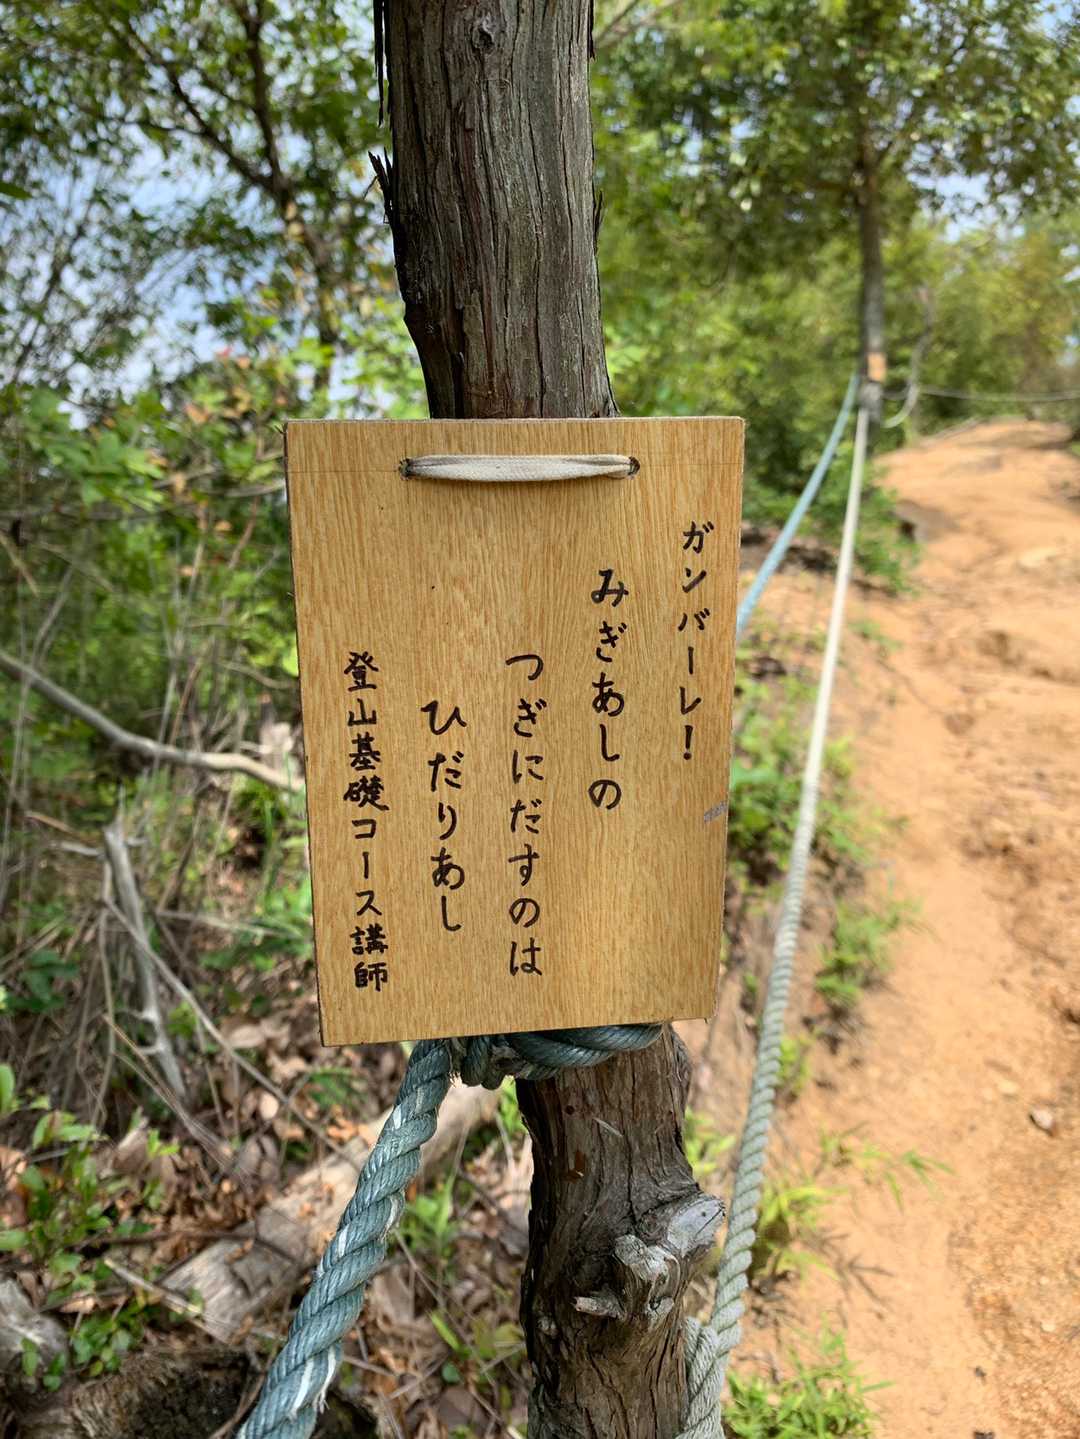 ガンバーレ!
みぎあしの
つぎにだすのは
ひだりあし
登山基礎コース講師